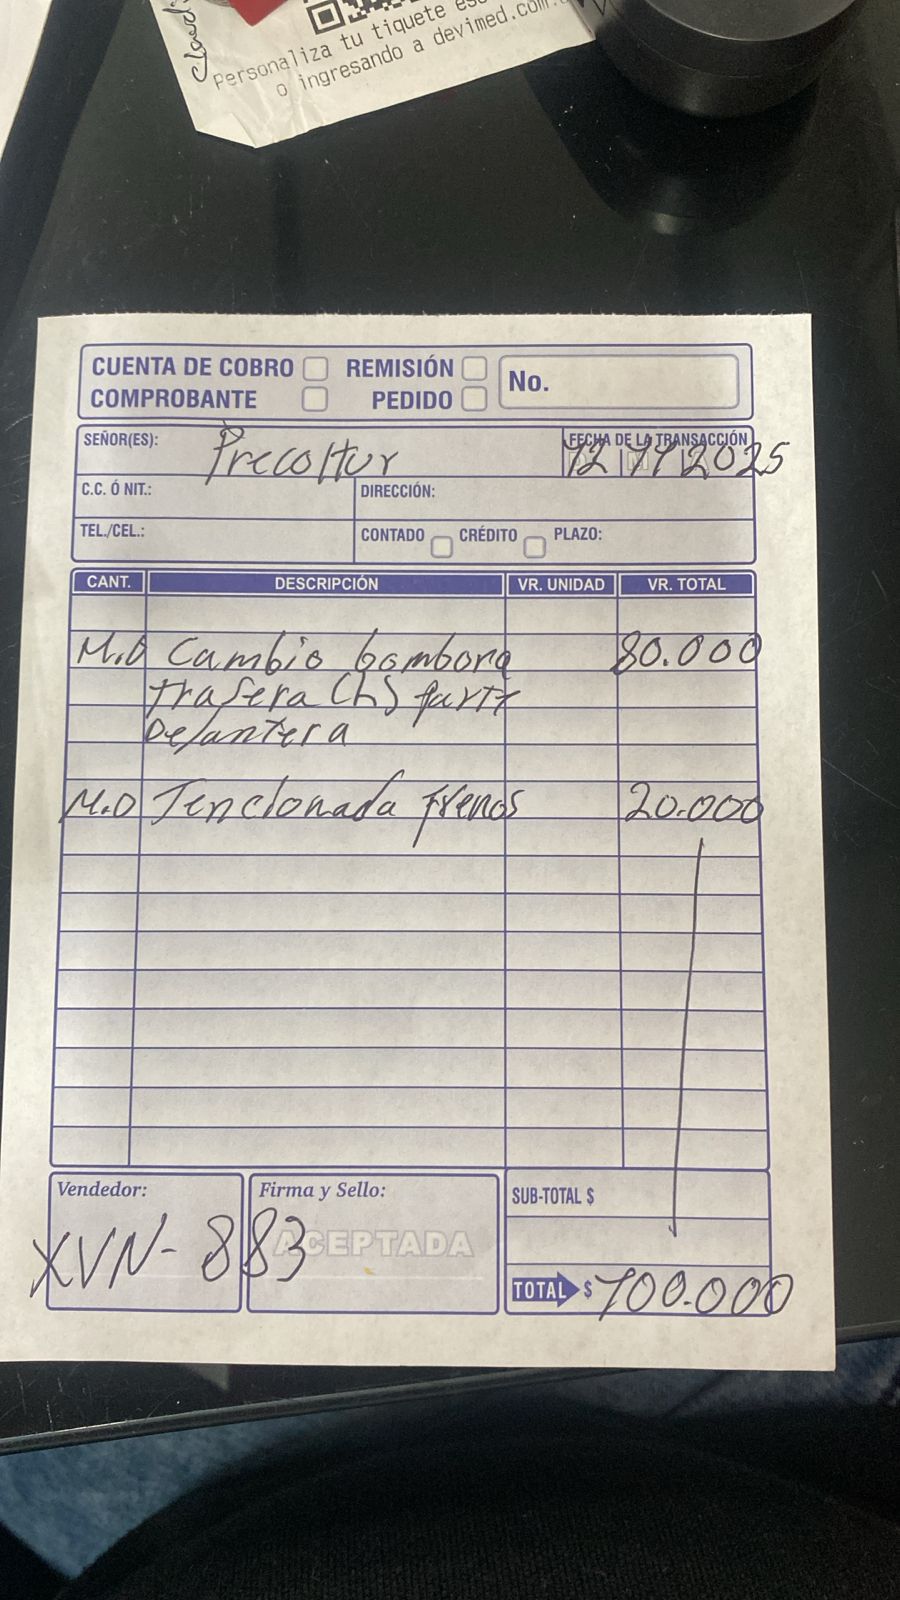 Claud
Personaliza tu tiquete es
o ingresando a devimed.com.
CUENTA DE COBRO REMISIÓN No.
COMPROBANTE PEDIDO
SEÑOR(ES): Precoltur FECHA DE LA TRANSACCIÓN
12 11 2025
C.C. Ó NIT.: DIRECCIÓN:
TEL./CEL.: CONTADO CRÉDITO PLAZO:
CANT. DESCRIPCIÓN VR. UNIDAD VR. TOTAL
M.O Cambio bombona 80.000
trasera (h) parte
Delantera
M.O Tencionada frenos 20.000
Vendedor: Firma y Sello: SUB-TOTAL $
XVN-883 ACEPTADA
TOTAL $ 100.000